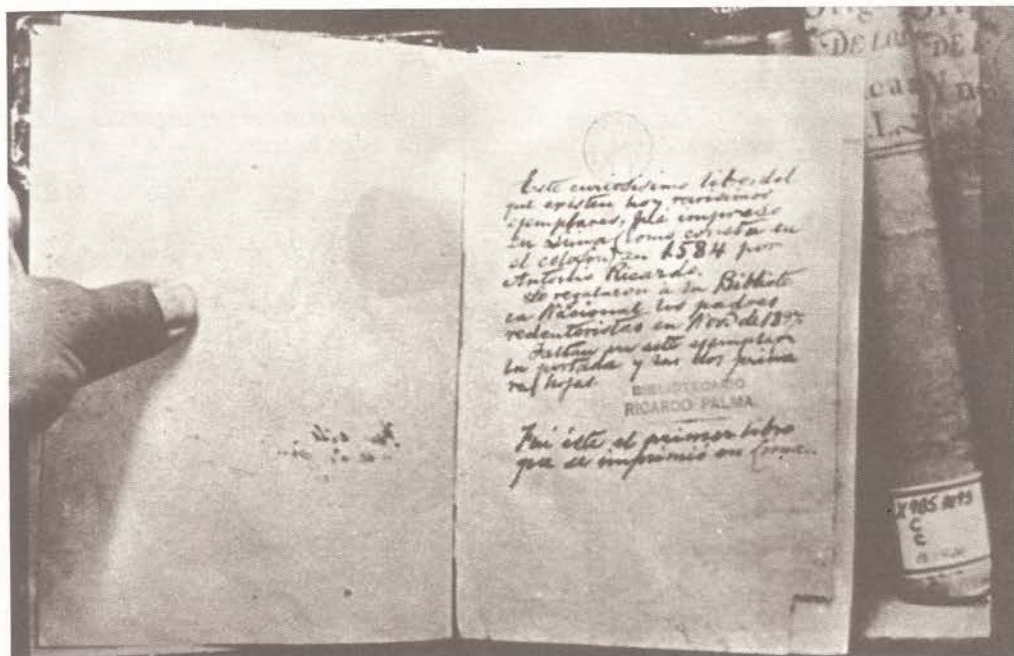 Este curiosisimo libro, del
que existen hoy rarisimos
ejemplares, fué impreso
en Lima (como consta en
el colofon) en 1584 por
Antonio Ricardo.
Lo regalaron á la Bibliote
ca Nacional los padres
redentoristas en Novbre de 18
Faltan en este ejemplar
la portada y las dos prime
ras hojas.
BIBLIOTECARIO
RICARDO PALMA
Fué éste el primer libro
que se imprimió en
DE LOS
DE
X985
C